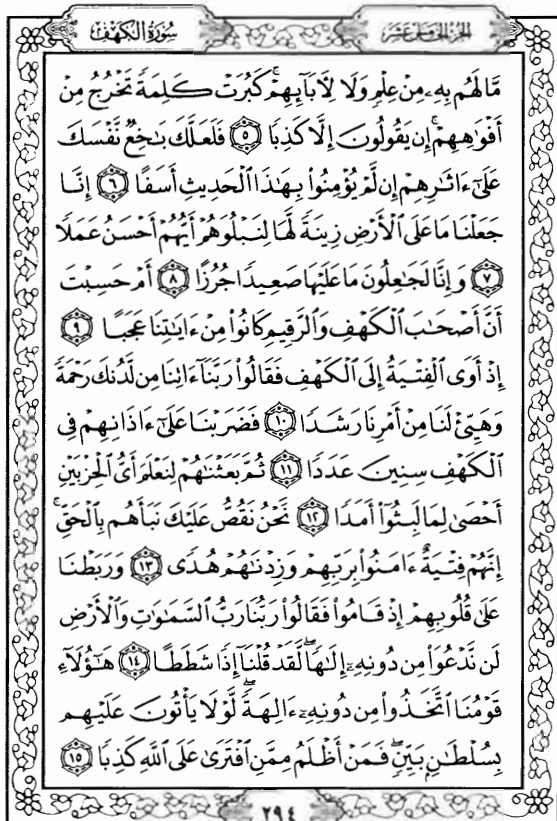 سُورَةُ الكَهْفِ
الجُزْءُ الخَامِسَ عَشَرَ
مَّا لَهُم بِهِۦ مِنْ عِلْمٍ وَلَا لِأَبَآئِهِمْ ۚ كَبُرَتْ كَلِمَةً تَخْرُجُ مِنْ
أَفْوَٰهِهِمْ ۚ إِن يَقُولُونَ إِلَّا كَذِبًا ٥ فَلَعَلَّكَ بَـٰخِعٌ نَّفْسَكَ
عَلَىٰٓ ءَاثَـٰرِهِمْ إِن لَّمْ يُؤْمِنُوا۟ بِهَـٰذَا ٱلْحَدِيثِ أَسَفًا ٦ إِنَّا
جَعَلْنَا مَا عَلَى ٱلْأَرْضِ زِينَةً لَّهَا لِنَبْلُوَهُمْ أَيُّهُمْ أَحْسَنُ عَمَلًا
٧ وَإِنَّا لَجَـٰعِلُونَ مَا عَلَيْهَا صَعِيدًا جُرُزًا ٨ أَمْ حَسِبْتَ
أَنَّ أَصْحَـٰبَ ٱلْكَهْفِ وَٱلرَّقِيمِ كَانُوا۟ مِنْ ءَايَـٰتِنَا عَجَبًا ٩
إِذْ أَوَى ٱلْفِتْيَةُ إِلَى ٱلْكَهْفِ فَقَالُوا۟ رَبَّنَآ ءَاتِنَا مِن لَّدُنكَ رَحْمَةً
وَهَيِّئْ لَنَا مِنْ أَمْرِنَا رَشَدًا ١٠ فَضَرَبْنَا عَلَىٰٓ ءَاذَانِهِمْ فِى
ٱلْكَهْفِ سِنِينَ عَدَدًا ١١ ثُمَّ بَعَثْنَـٰهُمْ لِنَعْلَمَ أَىُّ ٱلْحِزْبَيْنِ
أَحْصَىٰ لِمَا لَبِثُوٓا۟ أَمَدًا ١٢ نَّحْنُ نَقُصُّ عَلَيْكَ نَبَأَهُم بِٱلْحَقِّ ۚ
إِنَّهُمْ فِتْيَةٌ ءَامَنُوا۟ بِرَبِّهِمْ وَزِدْنَـٰهُمْ هُدًى ١٣ وَرَبَطْنَا
عَلَىٰ قُلُوبِهِمْ إِذْ قَامُوا۟ فَقَالُوا۟ رَبُّنَا رَبُّ ٱلسَّمَـٰوَٰتِ وَٱلْأَرْضِ
لَن نَّدْعُوَا۟ مِن دُونِهِۦٓ إِلَـٰهًا ۖ لَّقَدْ قُلْنَآ إِذًا شَطَطًا ١٤ هَـٰٓؤُلَآءِ
قَوْمُنَا ٱتَّخَذُوا۟ مِن دُونِهِۦٓ ءَالِهَةً ۖ لَّوْلَا يَأْتُونَ عَلَيْهِم
بِسُلْطَـٰنٍۭ بَيِّنٍ ۖ فَمَنْ أَظْلَمُ مِمَّنِ ٱفْتَرَىٰ عَلَى ٱللَّهِ كَذِبًا ١٥
٢٩٤